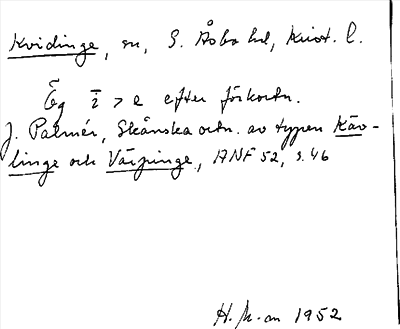 Kvidinge, sn, S. Åsbo hd, Krist. l.
Eg ī > e efter förkortn.
J. Palmér, Skånska ortn. av typen Käv-
linge och Värpinge, ANF 52, s. 46
H. 1952